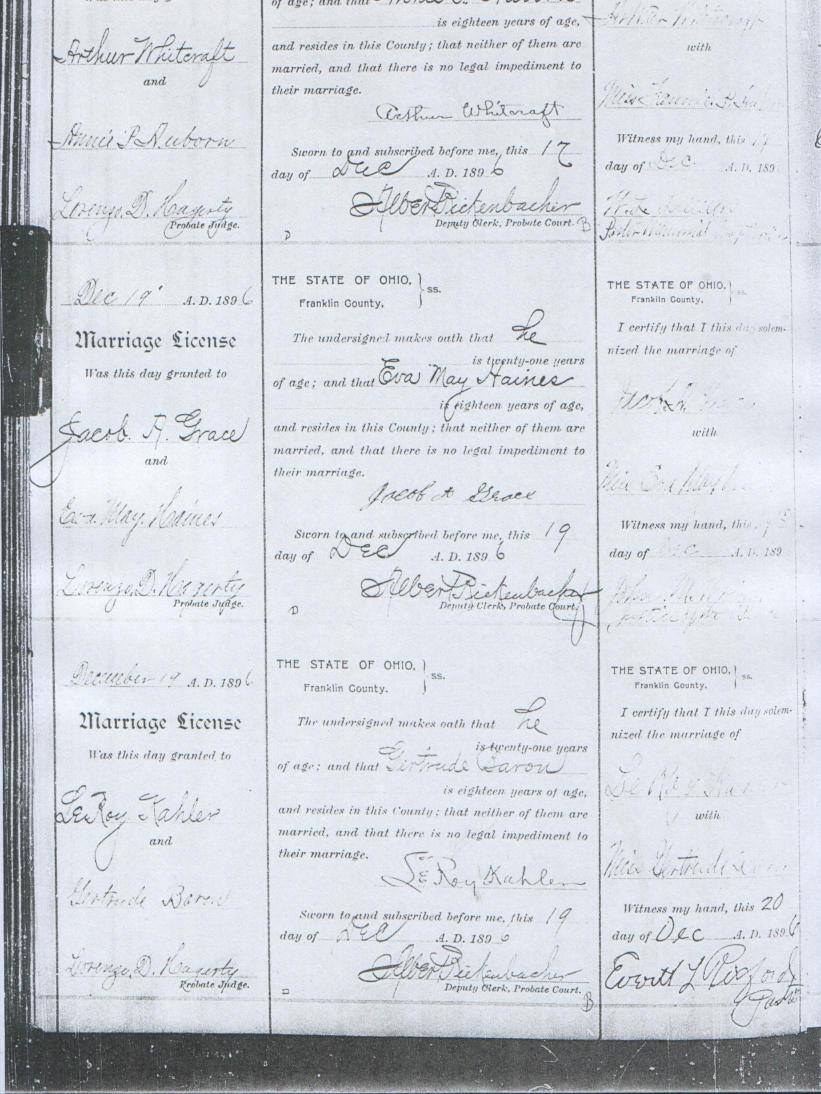 Arthur Whitcraft
and
Annie P. Auborn
Lorenzo D. Hagerty
Probate Judge.
of age; and that
is eighteen years of age,
and resides in this County; that neither of them are
married, and that there is no legal impediment to
their marriage.
Arthur Whitcraft
Sworn to and subscribed before me, this 17
day of Dec A. D. 1896
Albert Rickenbacher
Deputy Clerk, Probate Court. B
D
Arthur Whitcraft
with
Miss
Witness my hand, this 17
day of Dec A. D. 189
Dec 19" A. D. 1896
Marriage License
Was this day granted to
Jacob A. Grace
and
Eva. May. Haines
Lorenzo D. Hagerty
Probate Judge.
THE STATE OF OHIO,
Franklin County, } ss.
The undersigned makes oath that he
is twenty-one years
of age; and that Eva May Haines
is eighteen years of age,
and resides in this County; that neither of them are
married, and that there is no legal impediment to
their marriage.
Jacob A Grace
Sworn to and subscribed before me, this 19
day of Dec A. D. 1896
Albert Rickenbacher
Deputy Clerk, Probate Court.
D
THE STATE OF OHIO,
Franklin County, } ss.
I certify that I this day solem-
nized the marriage of
Jacob A
with
Miss Eva May
Witness my hand, this
day of Dec A. D. 189
John
December 19 A. D. 1896
Marriage License
Was this day granted to
LeRoy Kahler
and
Gertrude Baron
Lorenzo D. Hagerty
Probate Judge.
THE STATE OF OHIO,
Franklin County, } ss.
The undersigned makes oath that he
is twenty-one years
of age; and that Gertrude Baron
is eighteen years of age,
and resides in this County; that neither of them are
married, and that there is no legal impediment to
their marriage.
LeRoy Kahler
Sworn to and subscribed before me, this 19
day of Dec A. D. 1896
Albert Rickenbacher
Deputy Clerk, Probate Court.
D
B
THE STATE OF OHIO,
Franklin County, } ss.
I certify that I this day solem-
nized the marriage of
Le Roy
with
Miss Gertrude
Witness my hand, this 20
day of Dec A. D. 1896
Everitt L Rexford
Pastor